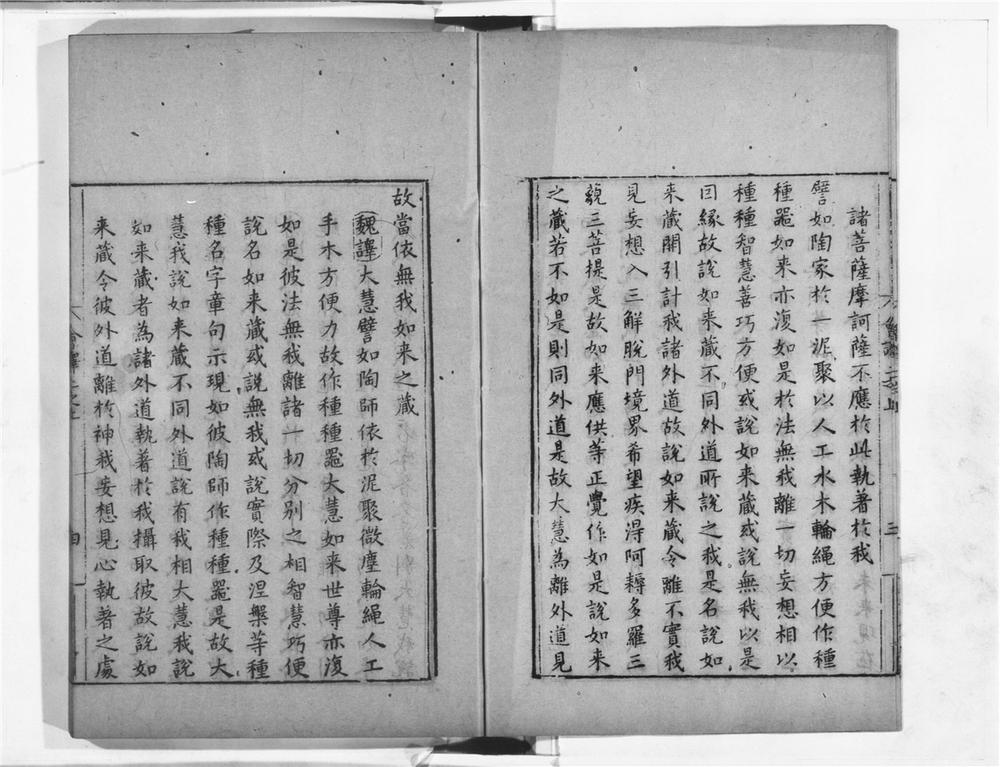 諸菩薩摩訶薩不應於此執著於我
譬如陶家於一泥聚以人工水木輪繩方便作種
種噐如来亦復如是於法無我離一切妄想相以
種種智慧善巧方便或說如来藏或說無我以是
因緣故說如来藏不同外道所說之我是名說如
来藏開引計我諸外道故說如来藏令離不實我
見妄想入三解脫門境界希望疾淂阿耨多羅三
藐三菩提是故如来應供等正覺作如是說如来
之藏若不如是則同外道是故大慧為離外道見
三
故當依無我如来之藏
魏譯大慧譬如陶師依於泥聚微塵輪繩人工
手木方便力故作種種噐大慧如来世尊亦復
如是彼法無我離諸一切分別之相智慧巧便
說名如来藏或說無我或說實際及涅槃等種
種名字章句示現如彼陶師作種種噐是故大
慧我說如来藏不同外道說有我相大慧我說
如来藏者為諸外道執著於我攝取彼故說如
来藏令彼外道離於神我妄想見心執著之處
四